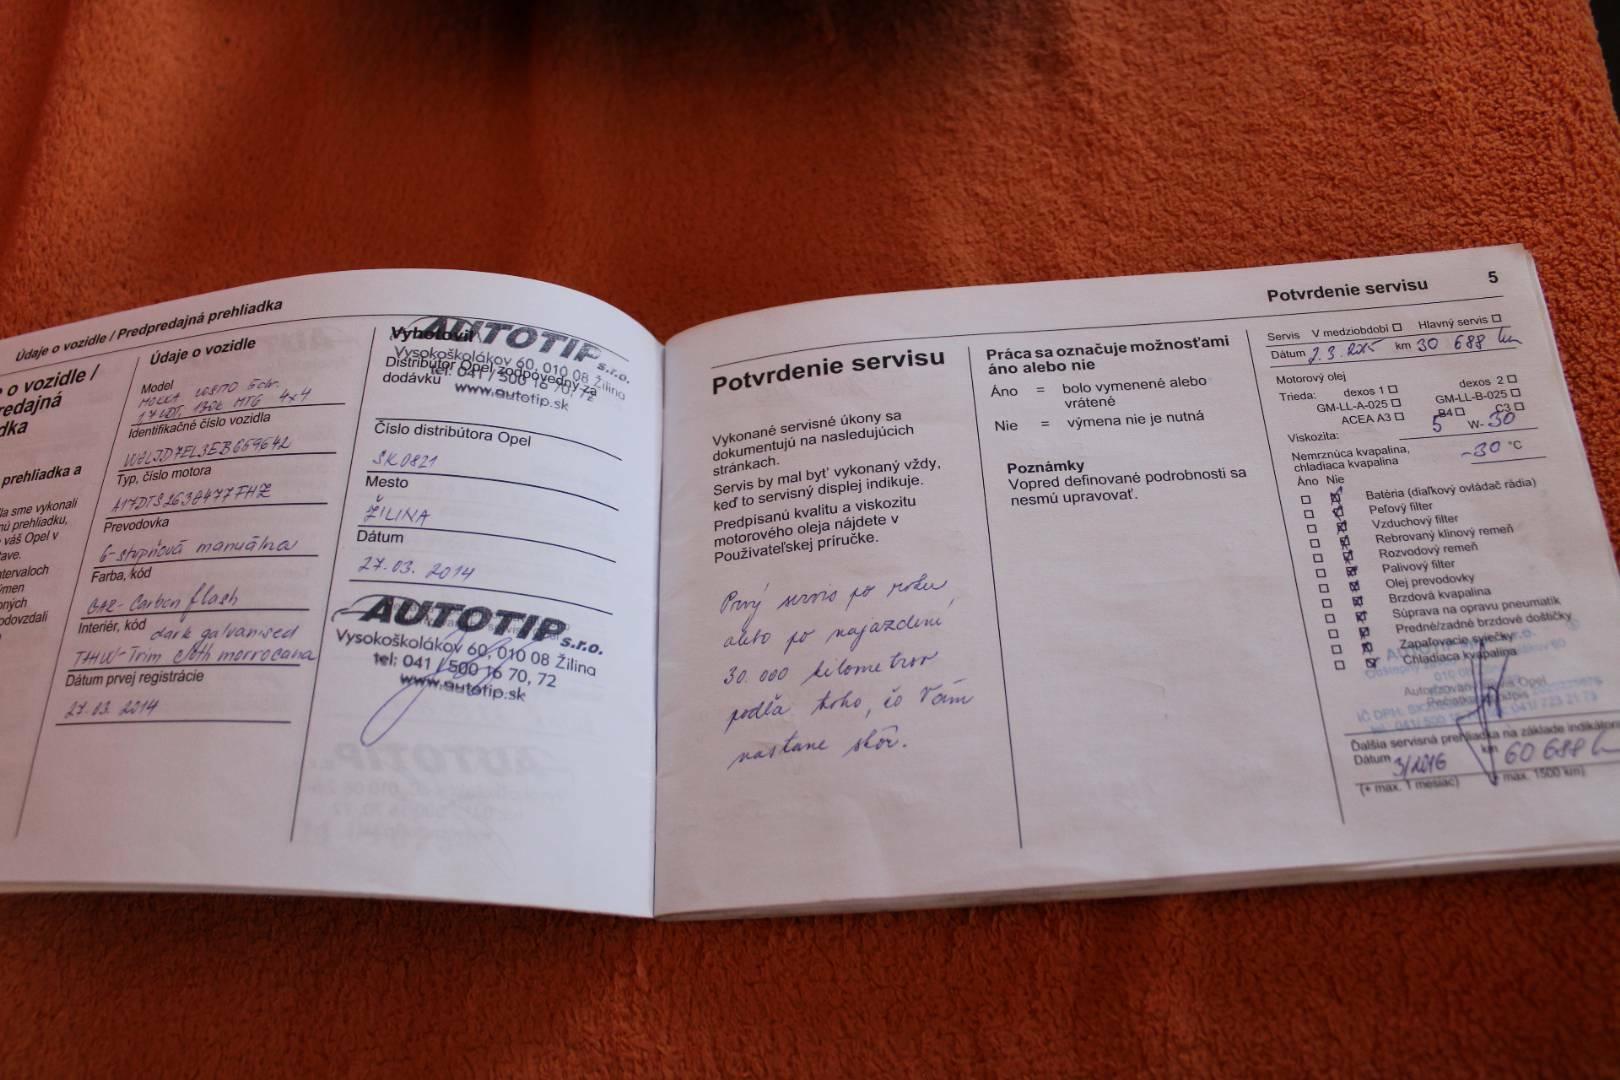 Údaje o vozidle / Predpredajná prehliadka
o vozidle /
redajná
dka
prehliadka a
la sme vykonali
nú prehliadku,
váš Opel v
tave.
ntervaloch
ýmen
bných
odovzdali
Údaje o vozidle
Model
MOKKA COSMO 5dr.
1,7 CDTI, 130k MT6 4x4
Identifikačné číslo vozidla
Typ, číslo motora
Prevodovka
6-stupňová manuálna
Farba, kód
GAR-Carbon flash
Interiér, kód dark galvanised
TAHW-Trim cloth morrocana
Dátum prvej registrácie
27.03. 2014
Vyhotovil
AUTOTIP s.r.o.
Vysokoškolákov 60, 010 08 Žilina
Distribútor Opel zodpovedný za
tel: 041 / 500 16 70, 72
dodávku
www.autotip.sk
Číslo distribútora Opel
SK0821
Mesto
ŽILINA
Dátum
27.03. 2014
AUTOTIP s.r.o.
Vysokoškolákov 60, 010 08 Žilina
tel: 041 / 500 16 70, 72
www.autotip.sk
Potvrdenie servisu 5
Potvrdenie servisu
Vykonané servisné úkony sa
dokumentujú na nasledujúcich
stránkach.
Servis by mal byť vykonaný vždy,
keď to servisný displej indikuje.
Predpísanú kvalitu a viskozitu
motorového oleja nájdete v
Používateľskej príručke.
Prvý servis po roku
alebo po najazdení
30.000 kilometrov
podľa toho, čo Vám
nastane skôr.
Práca sa označuje možnosťami
áno alebo nie
Áno = bolo vymenené alebo
vrátené
Nie = výmena nie je nutná
Poznámky
Vopred definované podrobnosti sa
nesmú upravovať.
Servis V medziobdobí Hlavný servis
Dátum 2.3.2015 km 30 688 km
Motorový olej
Trieda: dexos 1 dexos 2
GM-LL-A-025 GM-LL-B-025
ACEA A3 B4 C3
Viskozita: 5 W- 30
Nemrznúca kvapalina,
chladiaca kvapalina -30 °C
Áno Nie
Batéria (diaľkový ovládač rádia)
Peľový filter
Vzduchový filter
Rebrovaný klinový remeň
Rozvodový remeň
Palivový filter
Olej prevodovky
Brzdová kvapalina
Súprava na opravu pneumatík
Predné/zadné brzdové doštičky
Zapaľovacie sviečky
Chladiaca kvapalina
Autorizovaný servis Opel
Pečiatka, podpis
Ďalšia servisná prehliadka na základe indikátora
Dátum 3/2016 km 60 688 km
(+ max. 1 mesiac) (+ max. 1500 km)